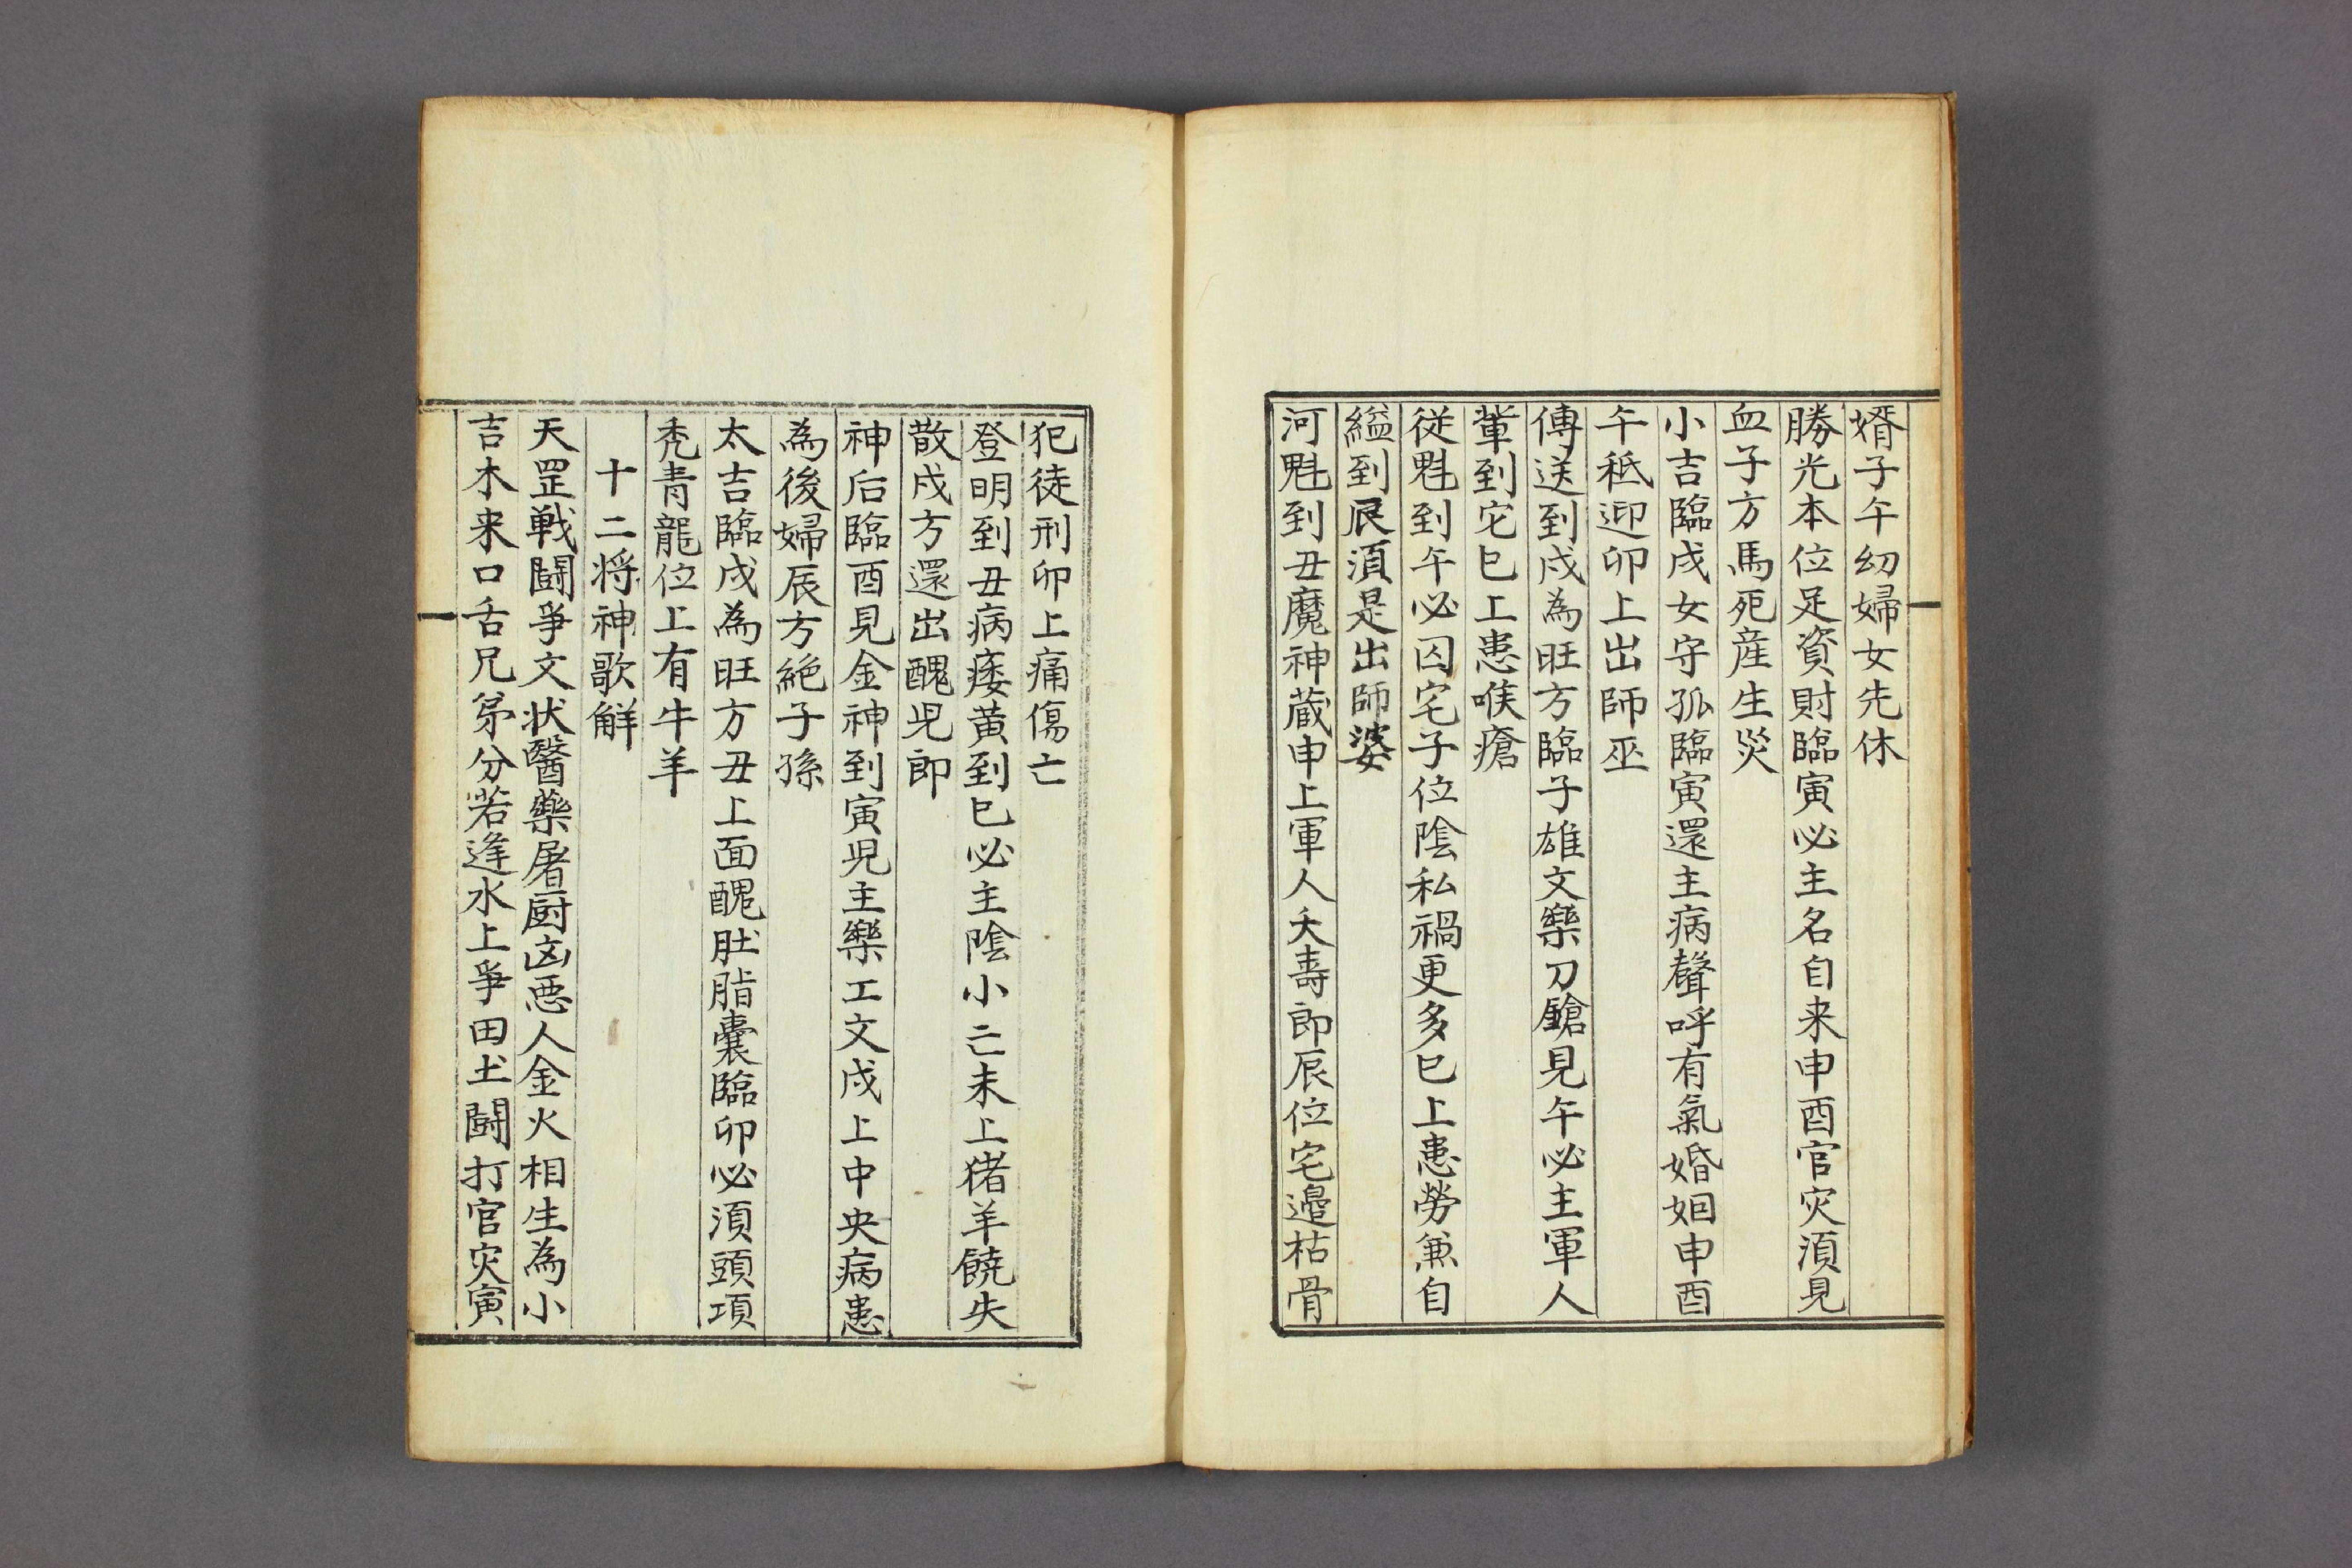 婿子午幼婦女先休
勝光本位足資財臨寅必主名自来申酉官灾湏見
血子方馬死産生災
小吉臨戌女守孤臨寅還主病聲呼有氣婚姻申酉
午秪迎卯上出師巫
傳送到戌為旺方臨子雄文藥刀鎗見午必主軍人
輩到它巳上患喉瘡
従魁到午必囚宅子位陰私禍更多巳上患勞兼自
縊到辰湏是出師婆
河魁到丑魔神蔵申上軍人夭壽郎辰位宅邉枯骨
犯徒刑卯上痛傷亡
登明到丑病痿黄到巳必主陰小亡未上猪羊饒失
散戌方還出醜児郎
神后臨酉見金神到寅児主樂工文戌上中央病患
為後婦辰方絶子孫
太吉臨戌為旺方丑上面醜肚脂囊臨卯必湏頭項
秃青龍位上有牛羊
十二将神歌觧
天罡戦鬪爭文状醫藥屠厨凶悪人金火相生為小
吉木来口舌兄弟分若逢水上爭田土鬪打官灾寅